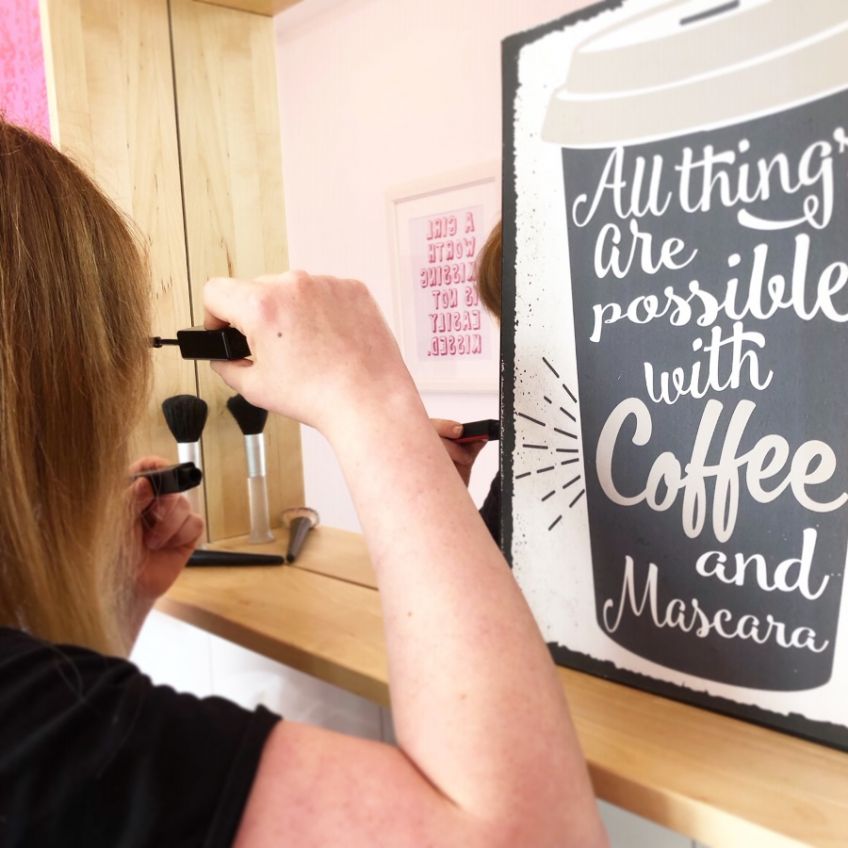 A GIRL
WORTH
KISSING
IS NOT
EASILY
KISSED.
All things
are
possible
with
Coffee
and
Mascara